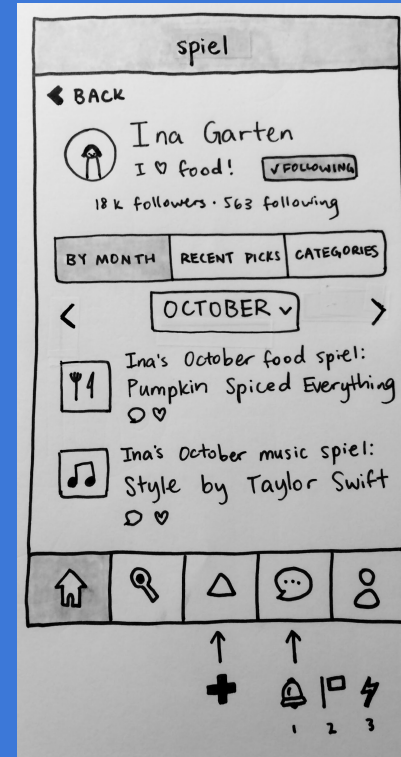 spiel
BACK
Ina Garten
I ♡ food!
✓FOLLOWING
18 k followers · 563 following
BY MONTH
RECENT PICKS
CATEGORIES
OCTOBER
Ina's October food spiel:
Pumpkin Spiced Everything
Ina's October music spiel:
Style by Taylor Swift
1 2 3